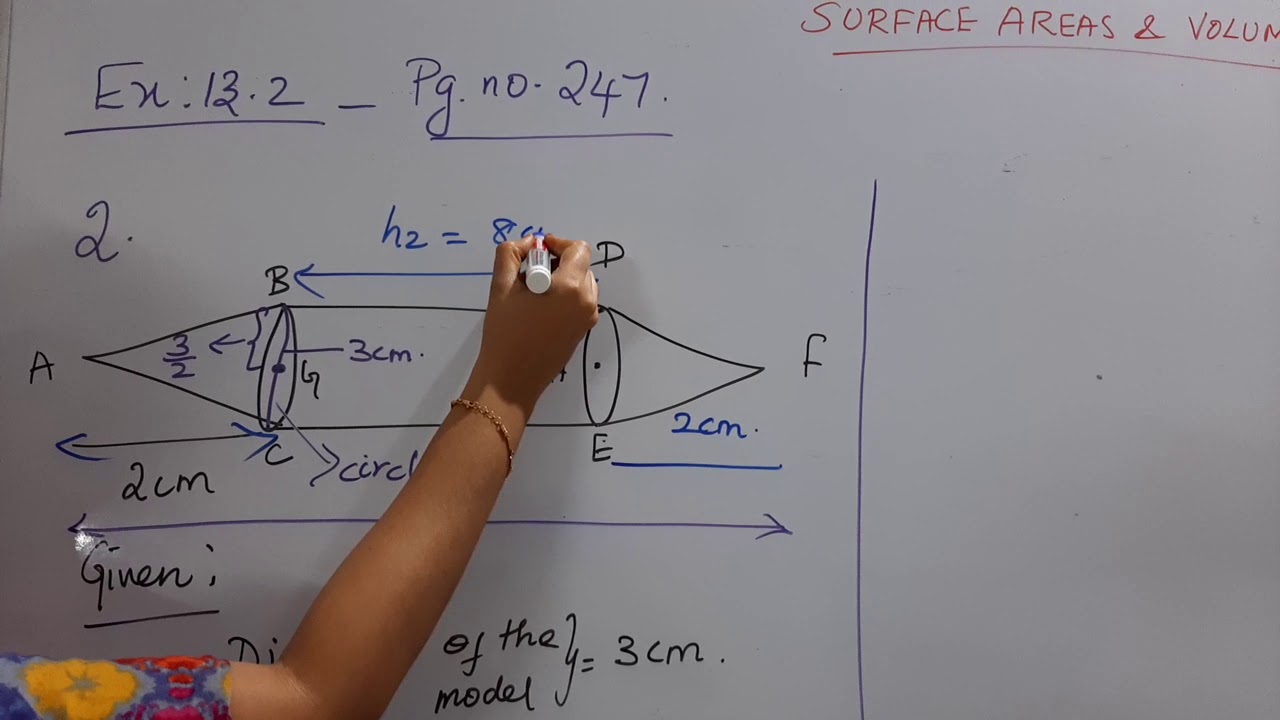 SURFACE AREAS & VOLUM
Ex: 13.2 - Pg. no. 247.
2.
h2 = 8c
B
D
A
3/2
3cm.
G
F
C
E
2cm.
2cm
circl
Given:
Di
of the
model
= 3cm.